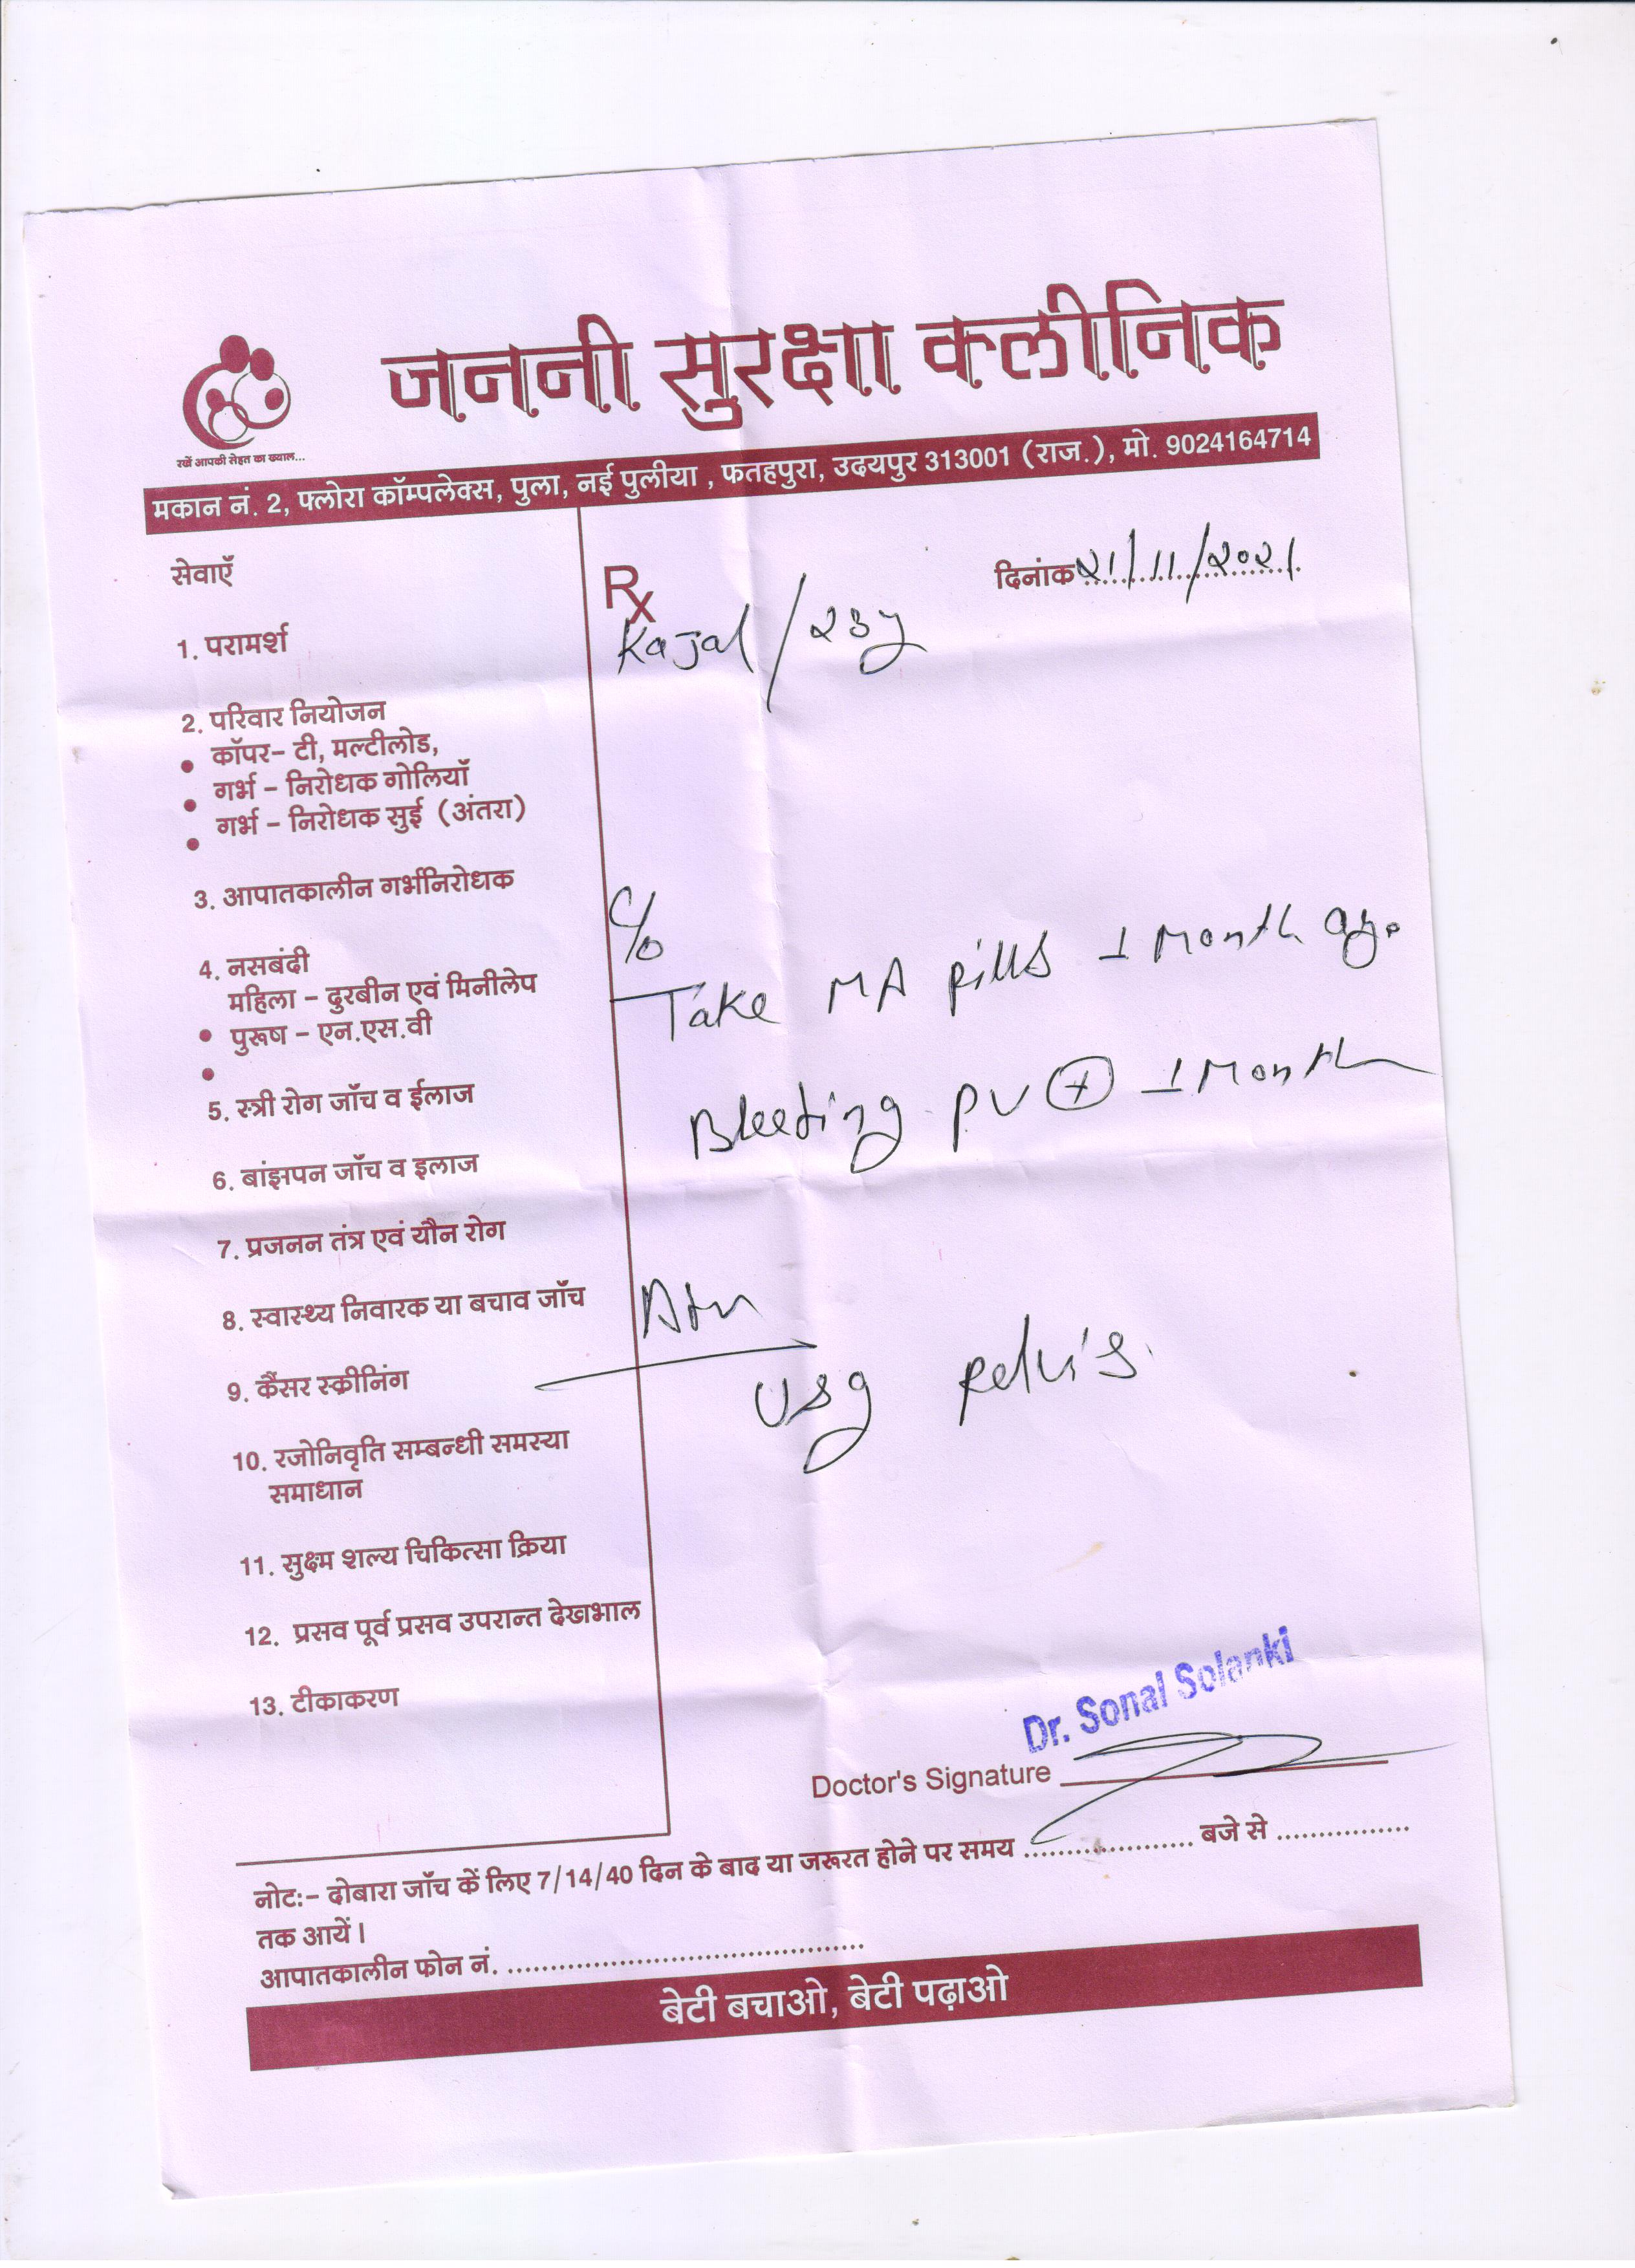 जननी सुरक्षा क्लीनिक
रखें आपकी सेहत का ख्याल...
मकान नं. 2, फ्लोरा कॉम्पलेक्स, पुला, नई पुलीया , फतहपुरा, उदयपुर 313001 (राज.), मो. 9024164714
सेवाएँ
1. परामर्श
2. परिवार नियोजन
• कॉपर- टी, मल्टीलोड,
• गर्भ - निरोधक गोलियाँ
• गर्भ - निरोधक सुई (अंतरा)
3. आपातकालीन गर्भनिरोधक
4. नसबंदी
महिला - दुरबीन एवं मिनीलेप
• पुरूष - एन.एस.वी
•
5. स्त्री रोग जाँच व ईलाज
6. बांझपन जाँच व इलाज
7. प्रजनन तंत्र एवं यौन रोग
8. स्वास्थ्य निवारक या बचाव जाँच
9. कैंसर स्क्रीनिंग
10. रजोनिवृति सम्बन्धी समस्या
समाधान
11. सुक्ष्म शल्य चिकित्सा क्रिया
12. प्रसव पूर्व प्रसव उपरान्त देखभाल
13. टीकाकरण
दिनांक २1/11/२०२1
Rx
Kajal / २3y
C/o
Take MA pills 1 Month ago
Bleeding PV ⊕ 1 Month
Usg pelvis.
Dr. Sonal Solanki
Doctor's Signature
नोट:- दोबारा जाँच कें लिए 7/14/40 दिन के बाद या जरूरत होने पर समय .................... बजे से ................
तक आयें।
आपातकालीन फोन नं. ..........................................
बेटी बचाओ, बेटी पढ़ाओ